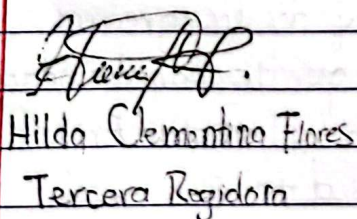 Hilda Clementina Flores
Tercera Regidora